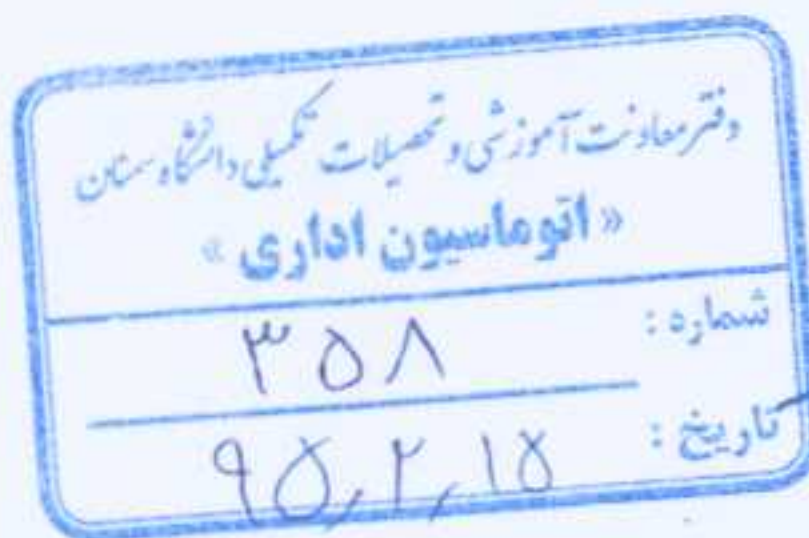 دفتر معاونت آموزشی و تحصیلات تکمیلی دانشگاه سمنان
« اتوماسیون اداری »
شماره : ۳۵۸
تاریخ : ۹۵٫۲٫۱۵